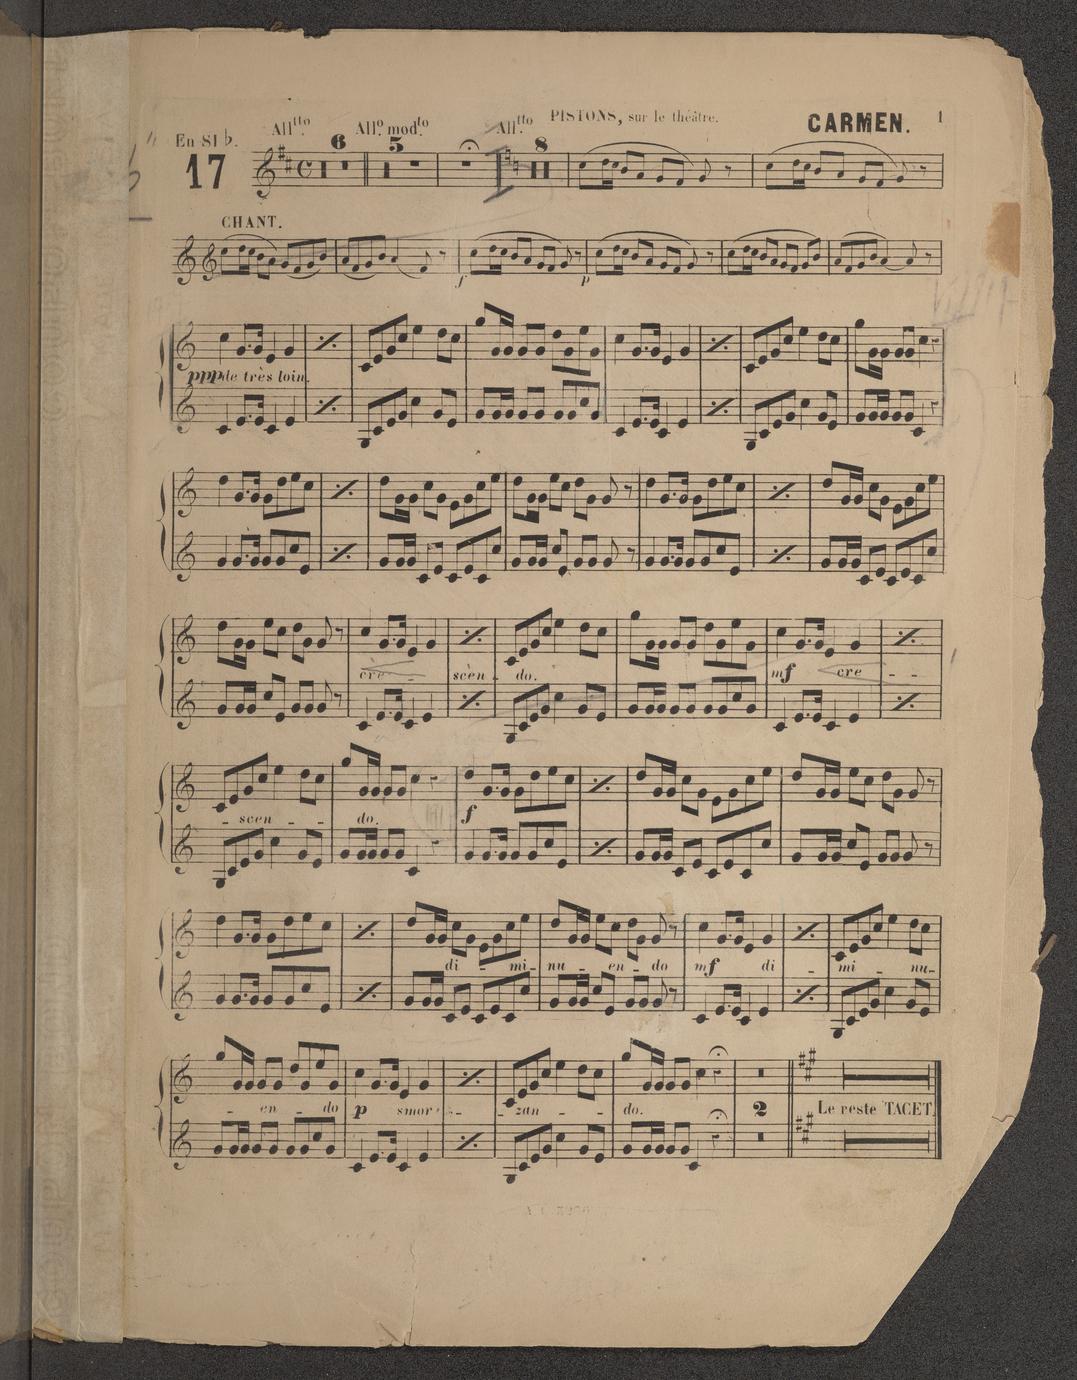 PISTONS, sur le théâtre.
CARMEN.
1
En SI♭.
All.tto
6
All.º mod.to
5
All.tto
8
17
CHANT.
f p
ppp de très loin.
cre - scen - do. mf cre - -
- scen - - do. f
di - mi - nu - en - do mf di - mi - nu -
- en - do p smor - - zan - - do.
2
Le reste TACET.